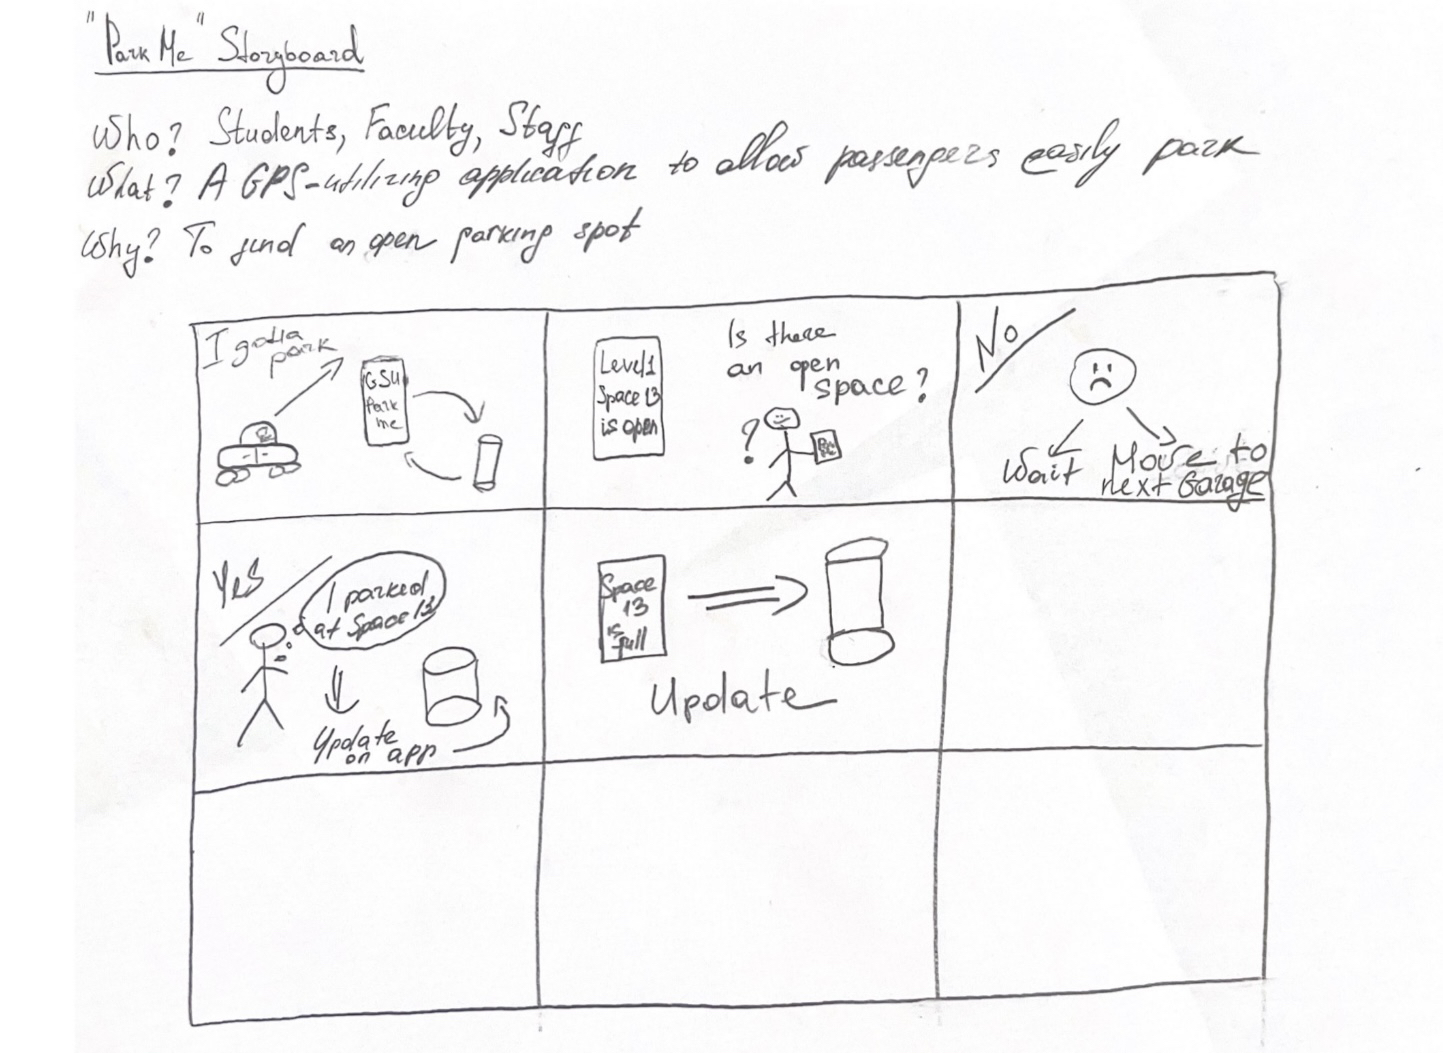 "Park Me" Storyboard
Who? Students, Faculty, Staff
What? A GPS-utilizing application to allow passengers easily park
Why? To find an open parking spot
I gotta
park
GSU
Park
me
Level 1
Space 13
is open
Is there
an open
space?
?
No
Wait
Move to
next Garage
Yes
I parked
at Space 13
Update
on app
Space
13
is
full
Update